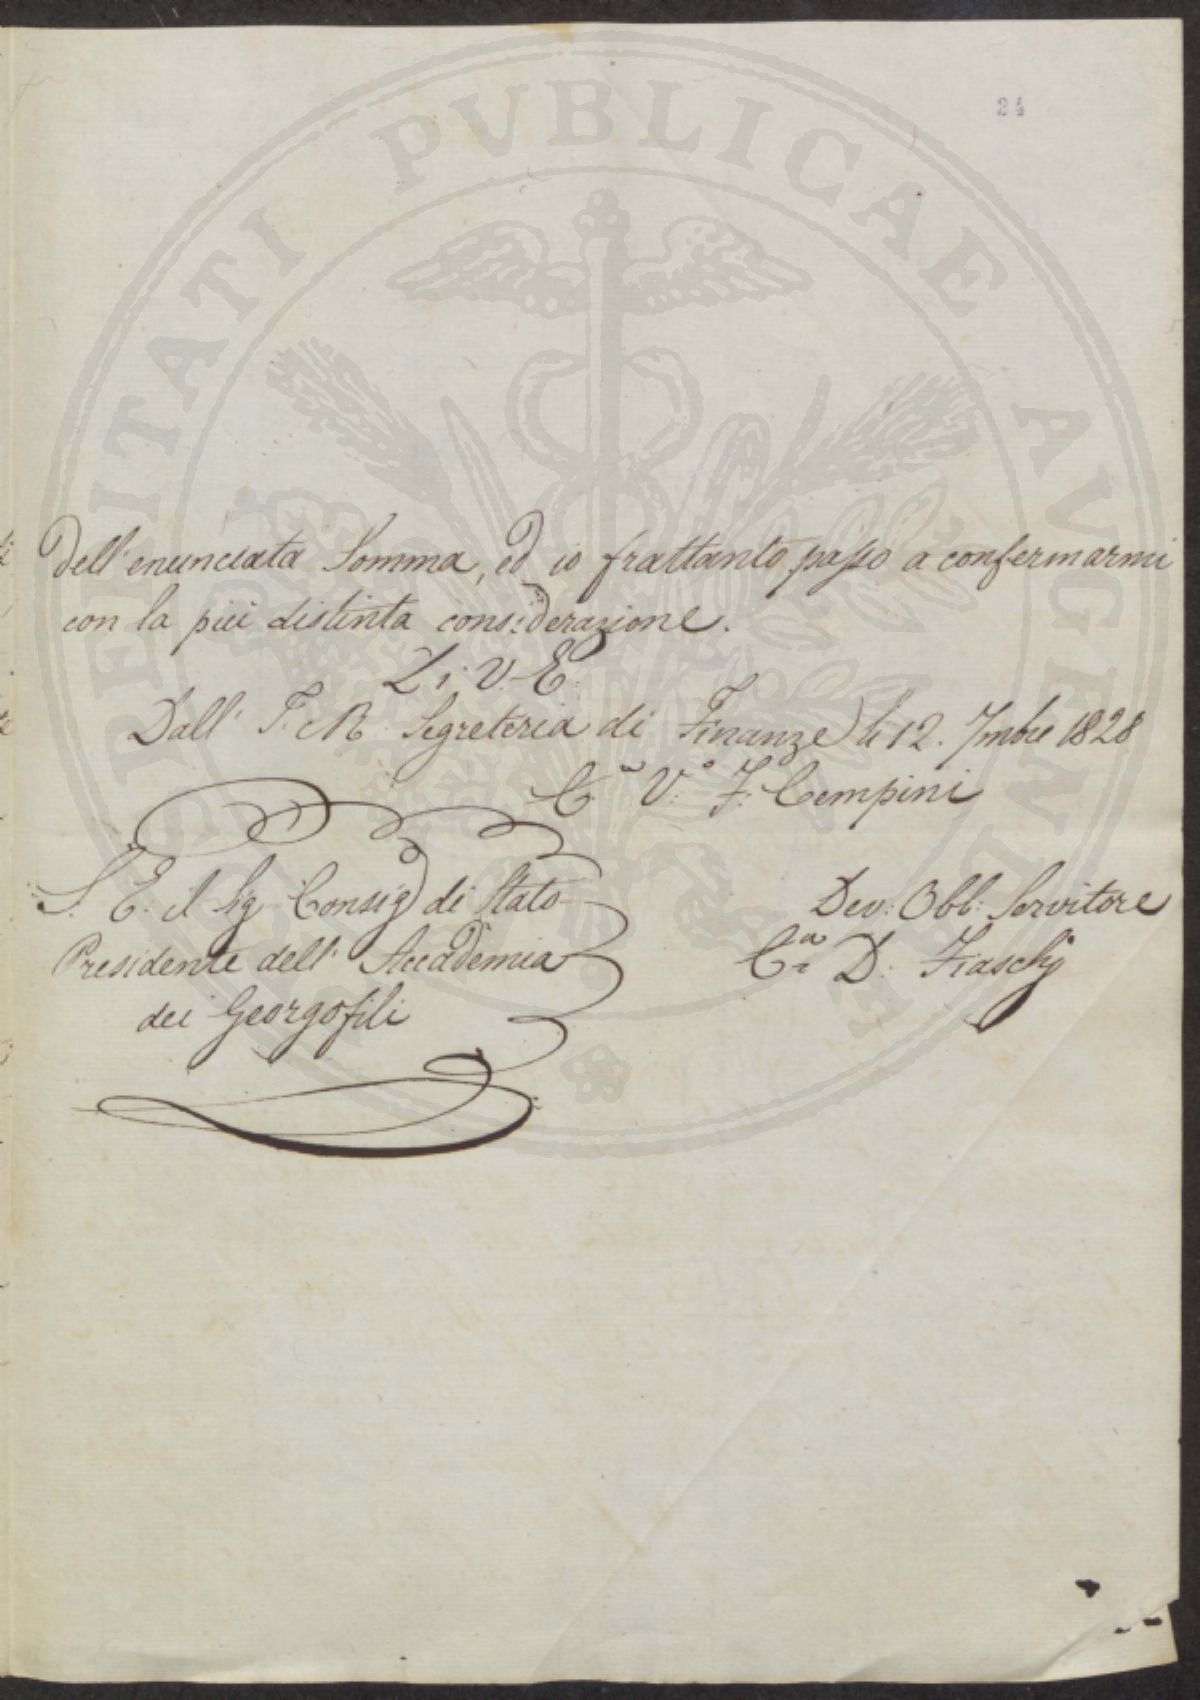 24
PROSPERITATI PUBLICAE AUGENDAE
dell'enunciata Somma, ed io frattanto passo a confermarmi
con la più distinta considerazione.
Di V. E.
Dall' I. e R. Segreteria di Finanze li 12. 7mbre 1828
V.° F. Cempini
S. E. il Sig Consig di Stato
Presidente dell' Accademia
dei Georgofili
Dev: Obb: Servitore
D: Fiaschj